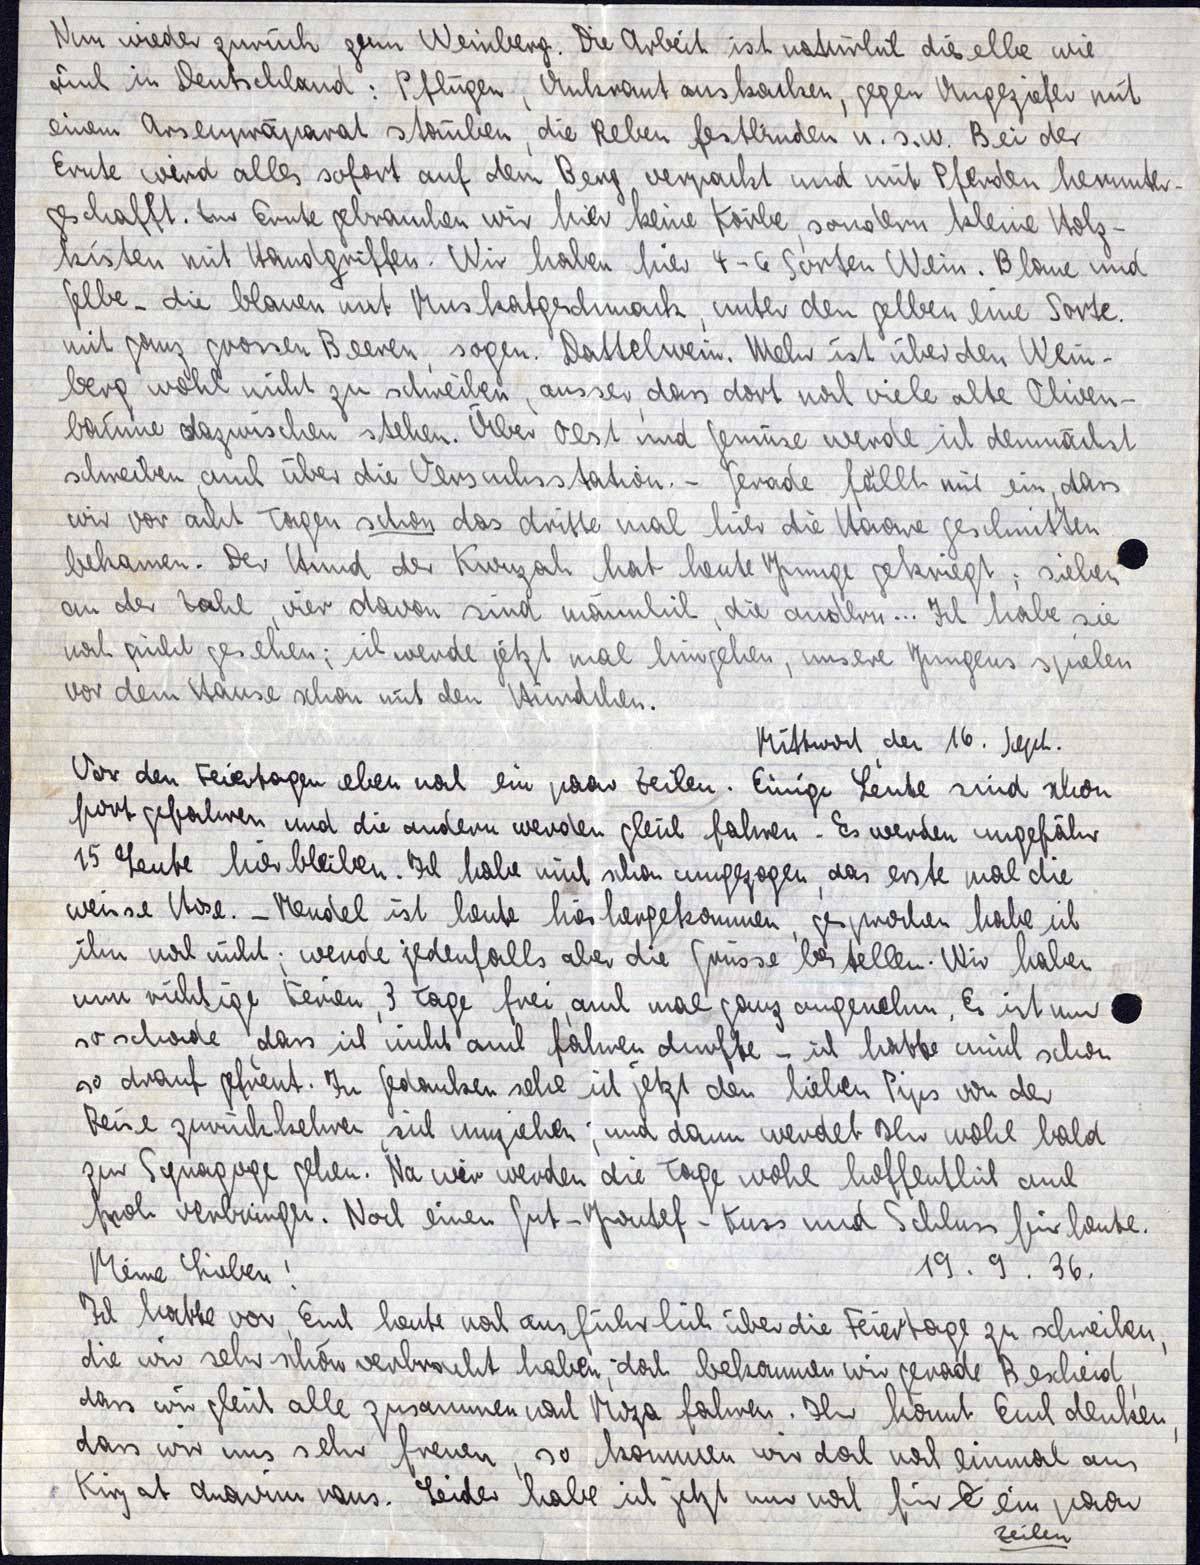 Nun wieder zurück zum Weinberg. Die Arbeit ist natürlich dieselbe wie
auch in Deutschland: Pflügen, Unkraut aushacken, gegen Ungeziefer mit
einem Arsenpräparat stäuben, die Reben festbinden u.s.w. Bei der
Ernte wird alles sofort auf dem Berg verpackt und mit Pferden herunter-
geschafft. Zur Ernte gebrauchen wir hier keine Körbe, sondern kleine Holz-
kisten mit Handgriffen. Wir haben hier 4-6 Sorten Wein. Blaue und
Gelbe - die blauen mit Muskatgeschmack, unter den gelben eine Sorte
mit ganz grossen Beeren, sogen. Dattelwein. Mehr ist über den Wein-
berg wohl nicht zu schreiben, ausser, dass dort noch viele alte Oliven-
bäume dazwischen stehen. Über Obst und Gemüse werde ich demnächst
schreiben, auch über die Versuchsstation. - Gerade fällt mir ein, dass
wir vor acht Tagen schon das dritte mal hier die Haare geschnitten
bekamen. Der Hund der Kwuzah hat heute Junge gekriegt; sieben
an der Zahl, vier davon sind männlich, die andern... Ich habe sie
noch nicht gesehen; ich werde jetzt mal hingehen, unsere Jungens spielen
vor dem Hause schon mit den Hündchen.
Mittwoch, den 16. Sept.
Vor den Feiertagen eben noch ein paar Zeilen. Einige Leute sind schon
fortgefahren und die andern werden gleich fahren - Es werden ungefähr
15 Leute hierbleiben. Ich habe mich schon umgezogen, das erste mal die
weisse Hose. - Mendel ist heute hierhergekommen, gesprochen habe ich
ihn noch nicht; werde jedenfalls aber die Grüsse bestellen. Wir haben
nun richtige Ferien, 3 Tage frei, auch mal ganz angenehm. Es ist nur
so schade, dass ich nicht auch fahren durfte - ich hatte mich schon
so drauf gefreut. In Gedanken sehe ich jetzt den lieben Pips von der
Reise zurückkehren, sich umziehen; und dann werdet Ihr wohl bald
zur Synagoge gehen. Na wir werden die Tage wohl hoffentlich auch
froh verbringen. Noch einen Gut-Jontef-Kuss und Schluss für heute.
Meine Lieben! 19. 9. 36.
Ich hatte vor, Euch heute noch ausführlich über die Feiertage zu schreiben,
die wir sehr schön verbracht haben; doch bekommen wir gerade Bescheid,
dass wir gleich alle zusammen nach Moza fahren. Ihr könnt Euch denken,
dass wir uns sehr freuen, so kommen wir doch noch einmal aus
Kirjat Anavim raus. Leider habe ich jetzt nur noch für ein paar
Zeilen